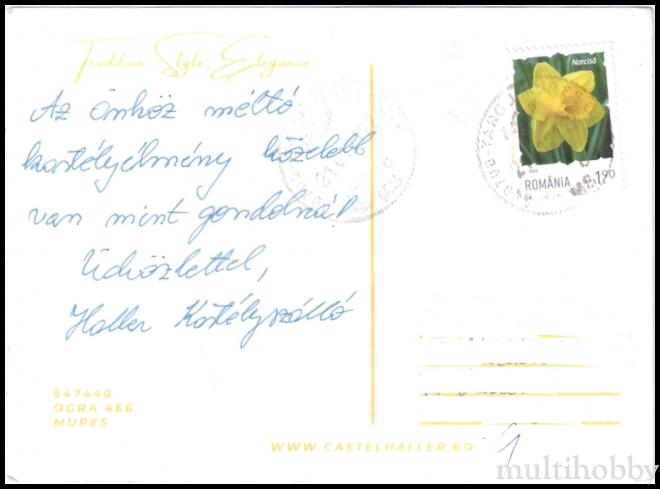 Tradition Style Elegance
Az önhöz méltó
kastélyélmény közelebb
van mint gondolná!
Üdvözlettel,
Haller Kastélyszálló
547440
OGRA 466
MURES
WWW.CASTELHALLER.RO
Narcisă
ROMÂNIA
1.90
TARG
1
multihobby